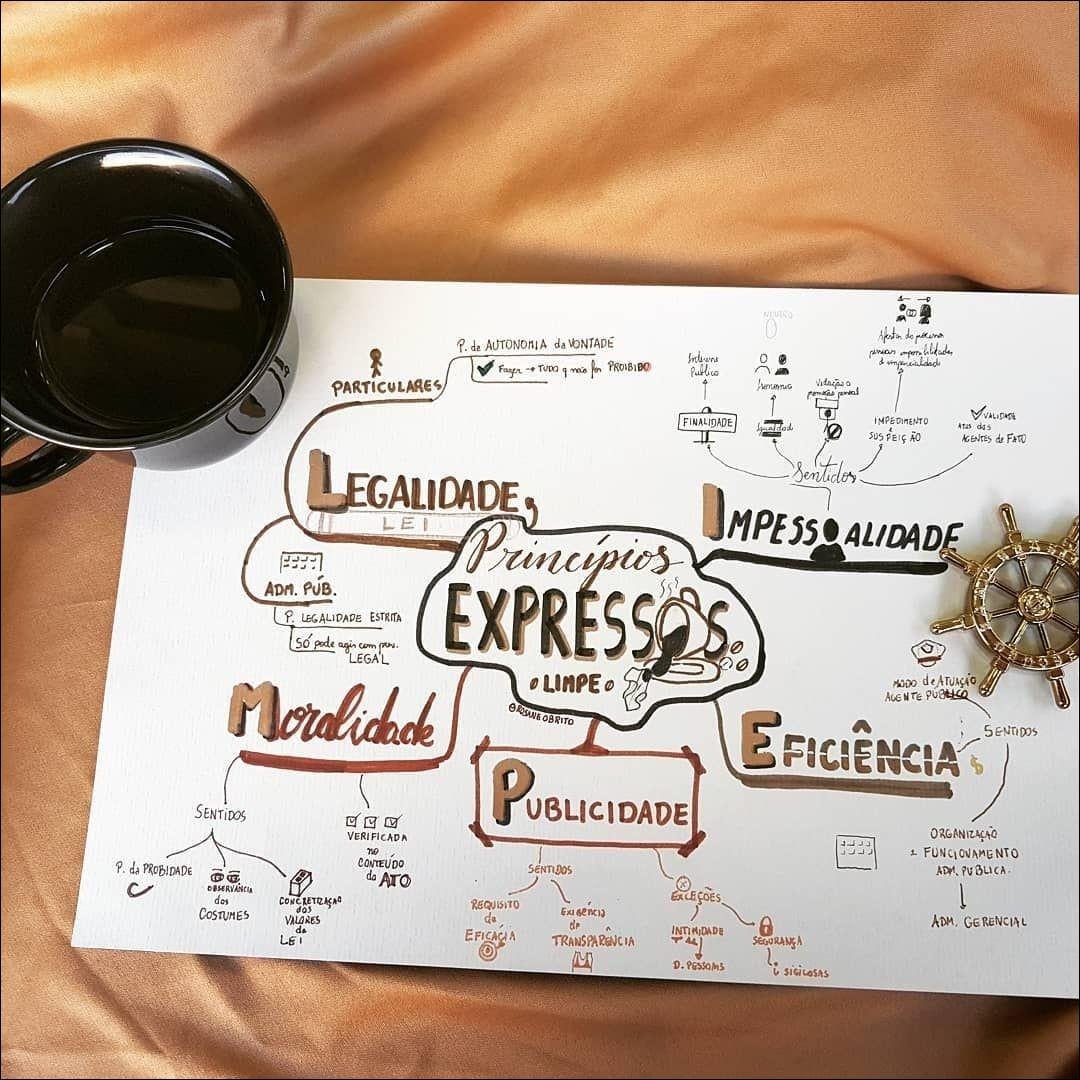 Princípios
EXPRESSOS
LIMPE
@ROSANEOBRITO
LEGALIDADE
LEI
PARTICULARES
P. da AUTONOMIA da VONTADE
Fazer → TUDO q não for PROIBIDO
ADM. PÚB.
P. LEGALIDADE ESTRITA
SÓ pode agir com prev.
LEGAL
IMPESSOALIDADE
Sentidos
FINALIDADE
Interesse
Público
Igualdad
Isonomia
NEUTRO
Vedação a
promoção pessoal
IMPEDIMENTO
e
SUSPEIÇÃO
Afastar do processo
pessoas
imparcialidade
VALIDADE
Atos dos
AGENTES de FATO
MORALIDADE
SENTIDOS
P. da PROBIDADE
OBSERVÂNCIA
dos
COSTUMES
CONCRETIZAÇÃO
dos
VALORES
da
LEI
VERIFICADA
no
CONTEÚDO
do ATO
PUBLICIDADE
SENTIDOS
REQUISITO
de
EFICÁCIA
EXIGÊNCIA
de
TRANSPARÊNCIA
EXCEÇÕES
INTIMIDADE
D. PESSOAIS
SEGURANÇA
i SIGILOSAS
EFICIÊNCIA
$
SENTIDOS
MODO de ATUAÇÃO
AGENTE PÚBLICO
ORGANIZAÇÃO
FUNCIONAMENTO
ADM. PÚBLICA.
ADM. GERENCIAL